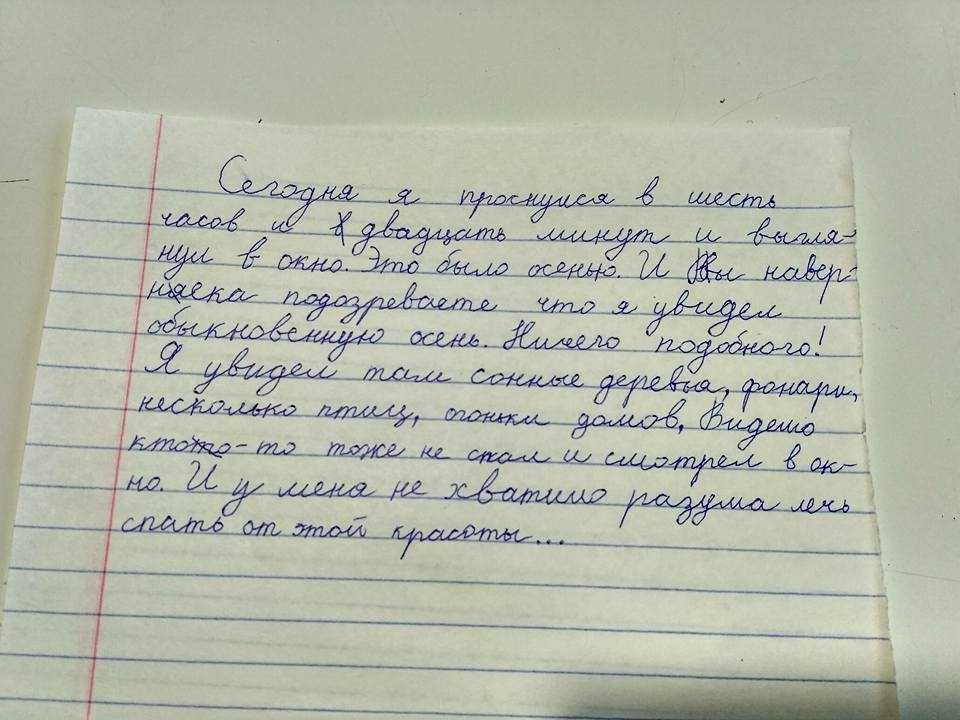 Сегодня я проснулся в шесть
часов и двадцать минут и выгля-
нул в окно. Это было осенью. И Вы навер-
няека подозреваете что я увидел
обыкновенную осень. Ничего подобного!
Я увидел там сонные деревья, фонари,
несколько птиц, огоньки домов, Видемо
кто-то тоже не спал и смотрел в ок-
но. И у меня не хватило разума лечь
спать от этой красоты...